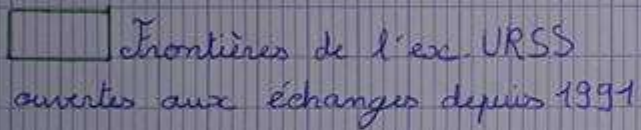 Frontières de l'ex. URSS
ouvertes aux échanges depuis 1991